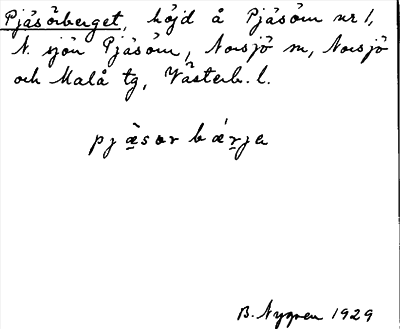 Pjäsöberget, höjd å Pjäsöm nr 1,
N. sjön Pjäsöm, Norsjö sn, Norsjö
och Malå tg, Västerb. l.
pjæ̀sɷr bǽrja
B. Nygren 1929